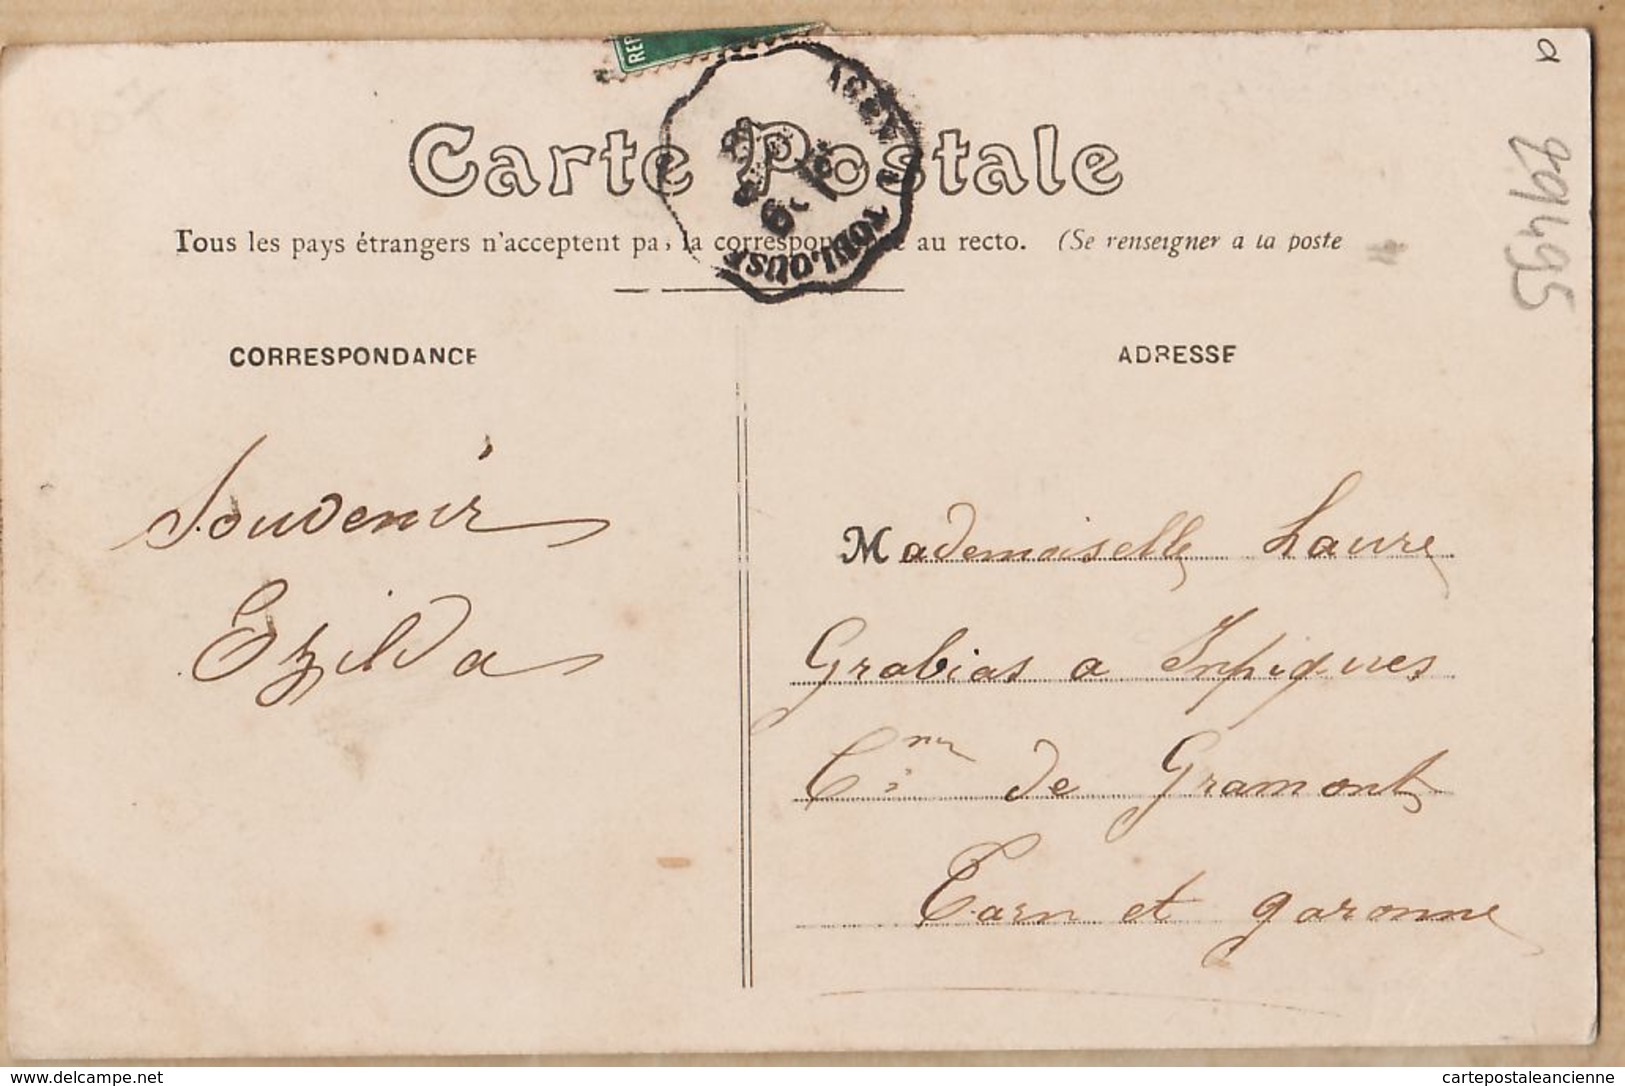 REP
AGEN A TOULOUSE
Carte Postale
Tous les pays étrangers n'acceptent pas la correspondance au recto. (Se renseigner a la poste
CORRESPONDANCE
ADRESSE
29495
Souvenir
Ezilda
Mademoiselle Laure
Grabias a Inpiques
Cne de Gramont
Tarn et garonne
www.delcampe.net
cartepostaleancienne